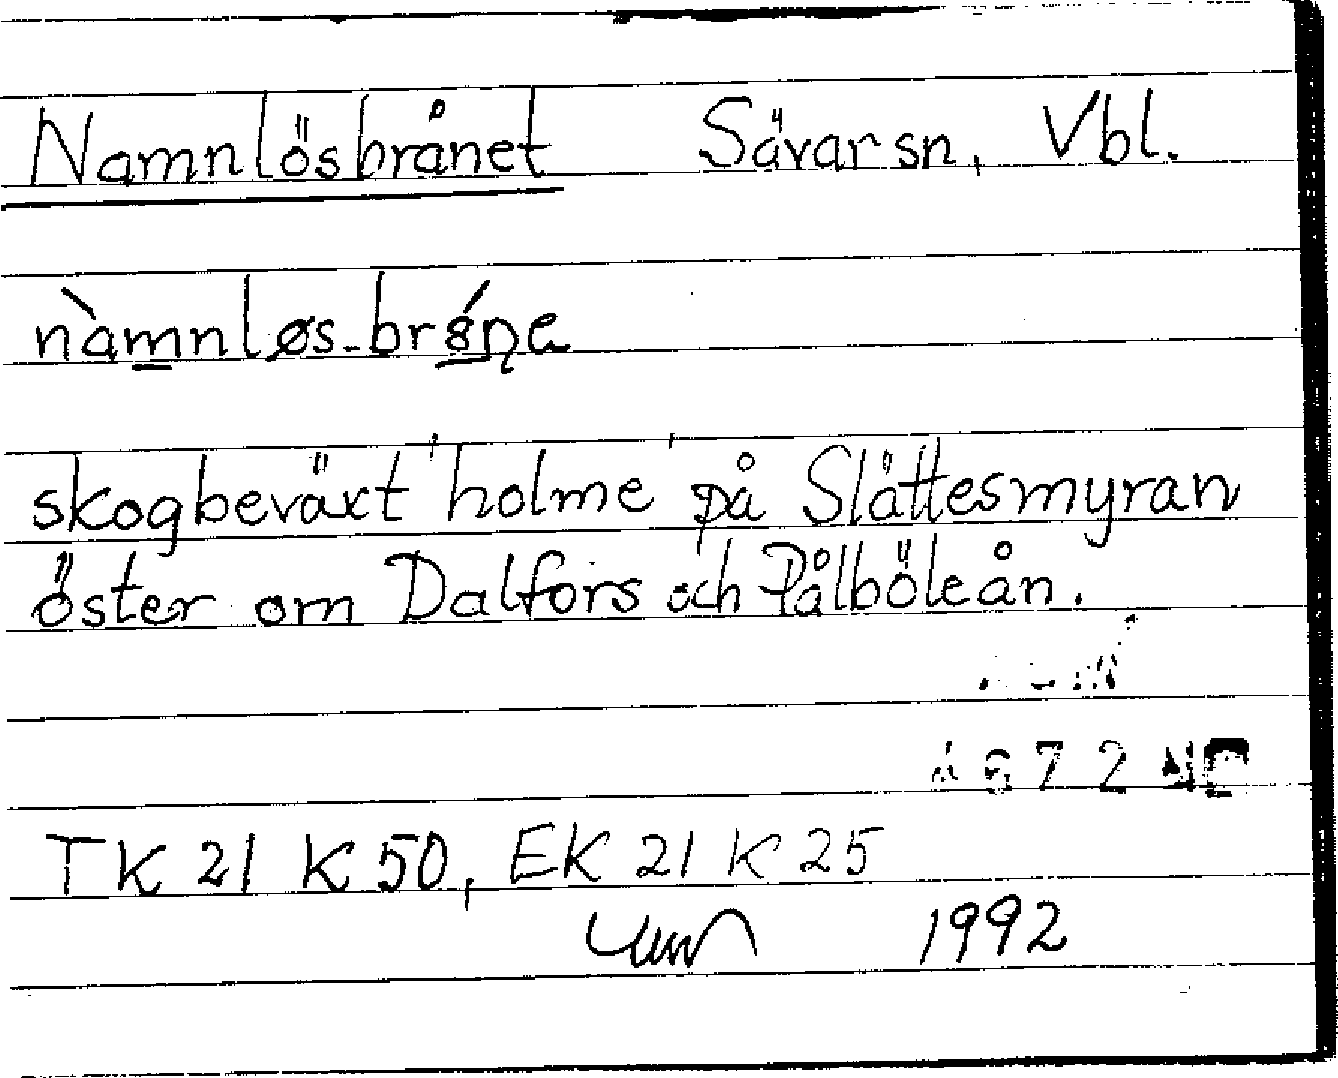 Namnlösbrånet Sävar sn, Vbl.
nàmnløs-bró̱ṇa
skogbeväxt 'holme' på Slättesmyran
öster om Dalfors och Pålböleån.
672
TK 21 K 50, EK 21 K 25
1992